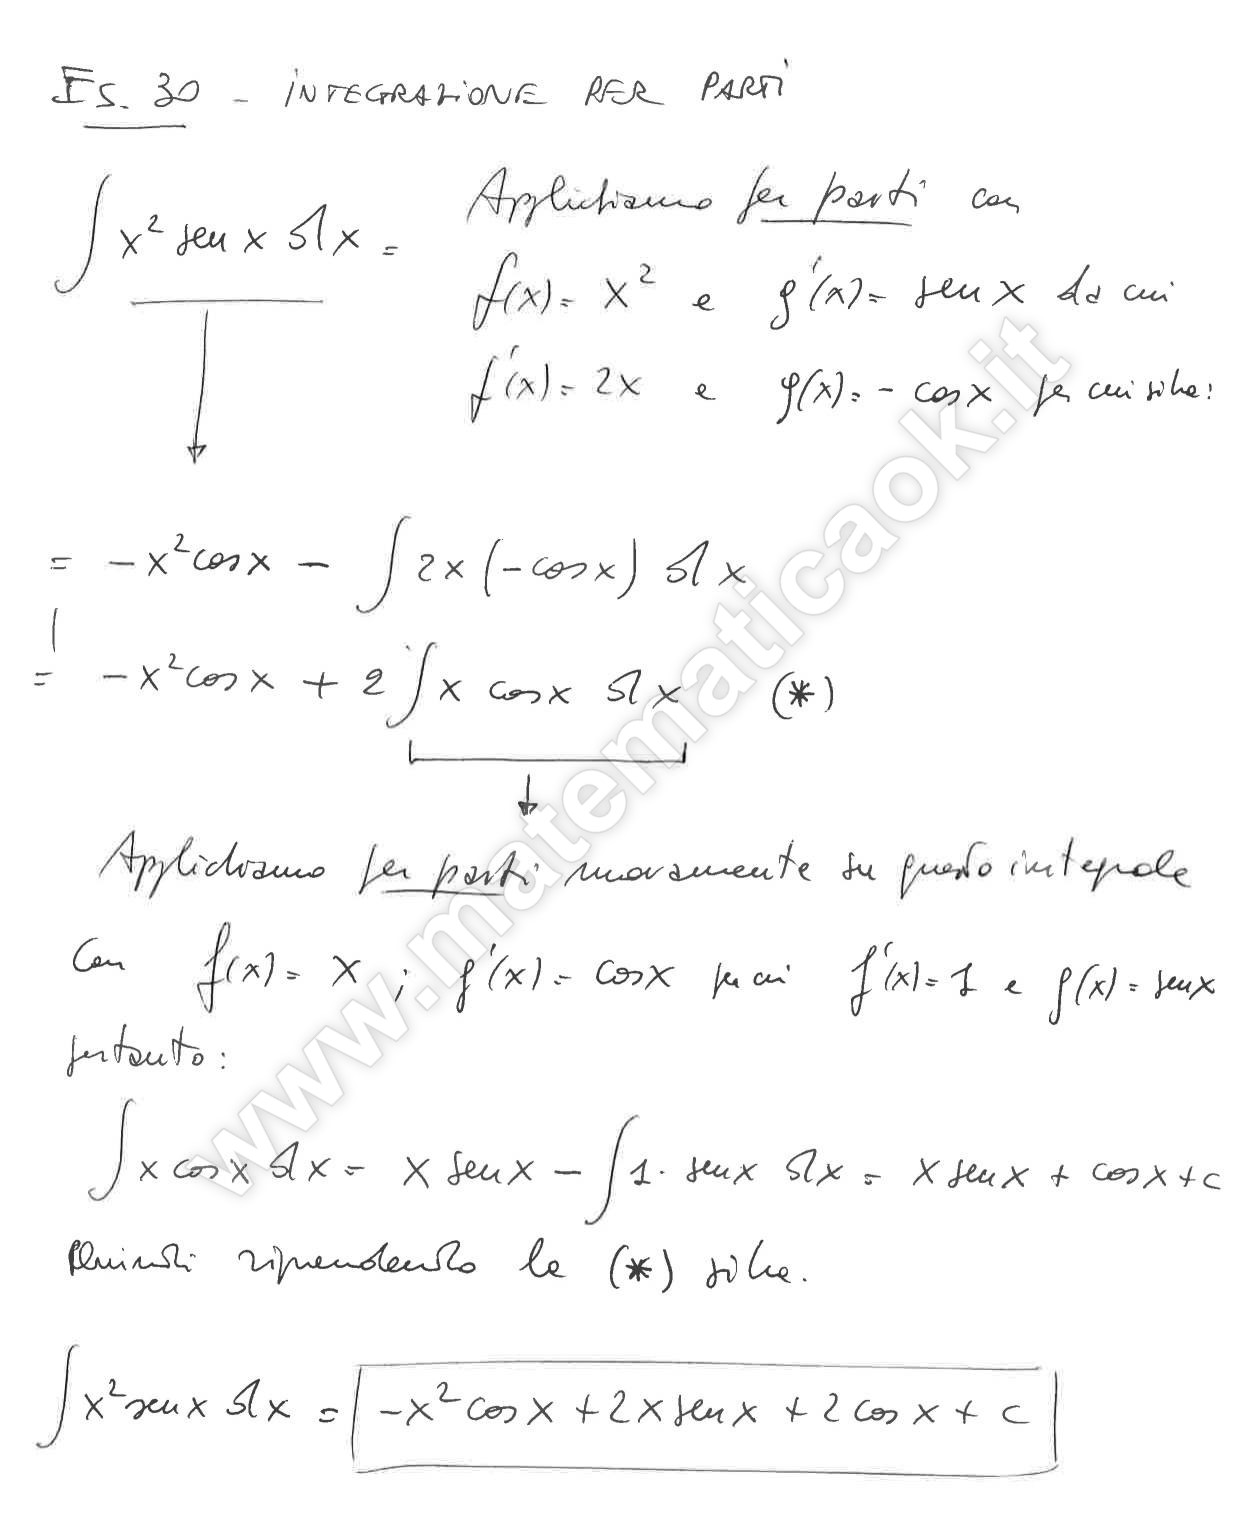 Es. 30 - INTEGRAZIONE PER PARTI
∫ x² sen x dx =
Applichiamo per parti con
f(x) = x² e g'(x) = sen x da cui
f'(x) = 2x e g(x) = - cos x per cui si ha:
= -x² cos x - ∫ 2x (-cos x) dx
= -x² cos x + 2 ∫ x cos x dx (*)
Applichiamo per parti nuovamente su questo integrale
con f(x) = x ; g'(x) = cos x per cui f'(x) = 1 e g(x) = sen x
pertanto:
∫ x cos x dx = x sen x - ∫ 1 · sen x dx = x sen x + cos x + c
Quindi riprendendo la (*) si ha.
∫ x² sen x dx = -x² cos x + 2x sen x + 2 cos x + c
www.matematicaok.it